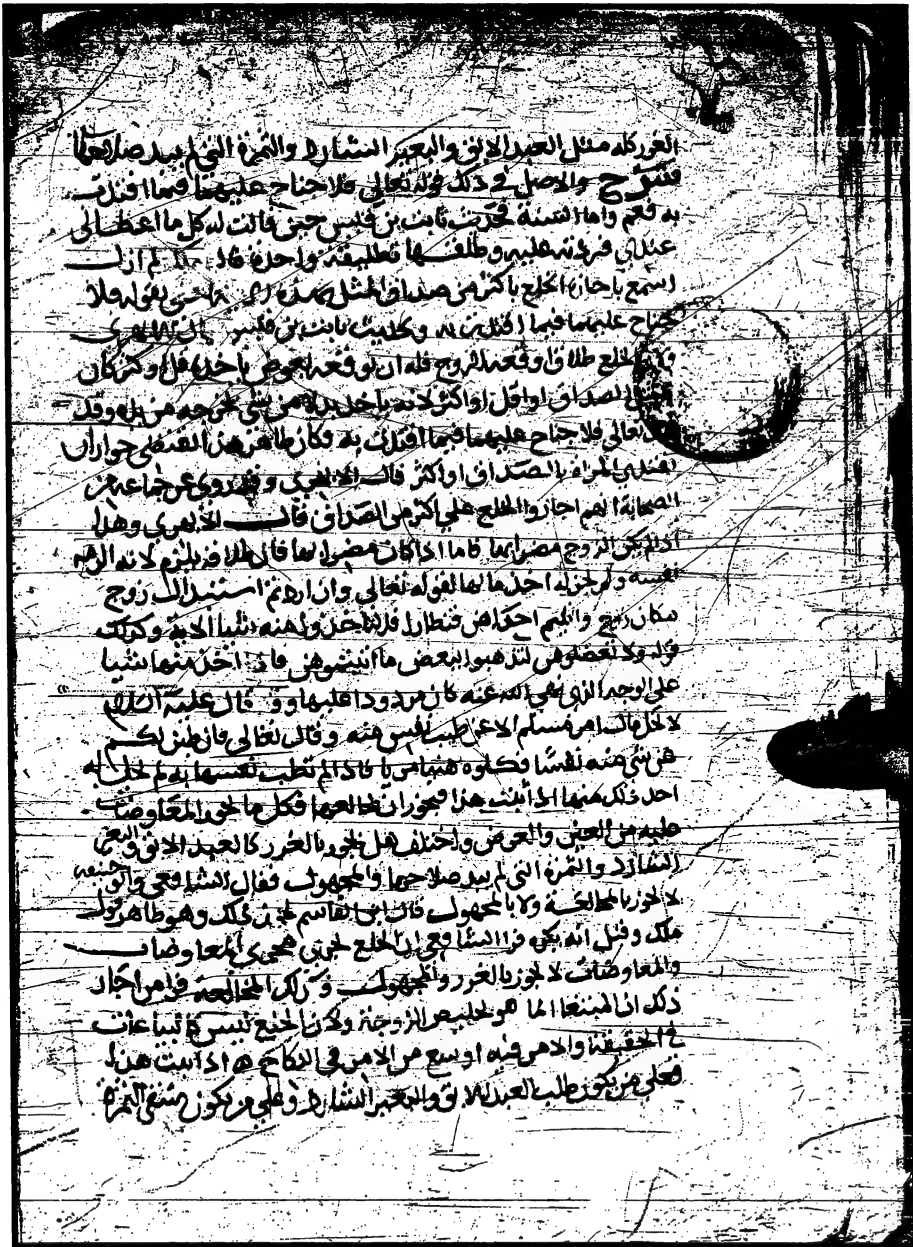 الغرر كله مثل العبد الابق والبعير الشارد والثمرة التي لم يبد صلاحها
شرح والاصل في ذلك قوله تعالى فلا جناح عليهما فيما افتدت
به فعم واما السنة فحديث ثابت بن قيس حين قالت له كل ما اعطاني
عندي فردته عليه وطلقها تطليقة واحدة قال لم ازل
اسمع باجازة الخلع باكثر من صداق المثل بقوله فلا
جناح عليهما فيما افتدت به وحديث ثابت بن قيس
الخلع طلاقا اوقعه الزوج فله ان يوقعه بعوض ياخذه قل او كثر كان
الصداق او اقل او اكثر لانه ياخذ بدلا من شي يخرجه من يده وقد
تعالى فلا جناح عليهما فيما افتدت به فكان ظاهر هذا يقتضي جواز ان
تفتدي المراة بالصداق او اكثر قال الابهري وقد روي عن جماعة من
الصحابة انهم اجازوا الخلع على اكثر من الصداق قال الابهري وهذا
اذا لم يكن الزوج مضرا بها فاما اذا كان مضرا بها قال طلاقه يلزم لانه الزمه
نفسه ولم يجز له اخذ مالها لقوله تعالى وان اردتم استبدال زوج
مكان زوج واتيتم احداهن قنطارا فلا تاخذوا منه شيئا الاية وكذلك
قوله ولا تعضلوهن لتذهبوا ببعض ما اتيتموهن فاذا اخذ منها شيئا
على الوجه الذي نهى الله عنه كان مردودا عليها وقد قال عليه السلام
لا يحل مال امر مسلم الا عن طيب نفس منه وقال تعالى فان طبن لكم
عن شي منه نفسا فكلوه هنيا مريا فاذا لم تطب نفسها به لم يحل له
اخذ ذلك منها اذا ثبت هذا فيجوز ان يخالعها بكل ما المعاوضات
عليه من العين والعرض واختلف هل يجوز بالغرر كالعبد الابق والبعير
الشارد والثمرة التي لم يبد صلاحها والمجهول فقال الشافعي وابو حنيفة
لا يجوز بالمخالعة ولا بالمجهول قال ابن القاسم يجوز ذلك وهو ظاهر قول
ملك وقيل انه يكره فراا الشافعي ان الخلع يجري مجرى المعاوضات
والمعاوضات لا يجوز بالغرر والمجهول وكذلك المخالعة فرا من اجاز
ذلك ان المبتغا انما هو تخليص الزوجة ولان الخلع ليس كالبياعات
في الحقيقة والامر فيه اوسع من الامر في النكاح اذا ثبت هذا
فعلى من يكون طلب العبد الابق والبعير الشارد وعلى من يكون سقي الثمرة